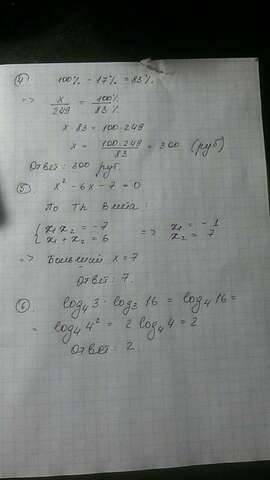 ④ 100% - 17% = 83%
=> x/249 = 100%/83%
x · 83 = 100 · 249
x = 100 · 249/83 = 300 (руб)
Ответ: 300 руб.
⑤ x² - 6x - 7 = 0
По Тн. Виета:
{ x₁x₂ = -7
x₁ + x₂ = 6 => x₁ = -1
x₂ = 7
=> Больший x = 7
Ответ: 7.
⑥ log₄ 3 · log₃ 16 = log₄ 16 =
= log₄ 4² = 2 log₄ 4 = 2
Ответ: 2